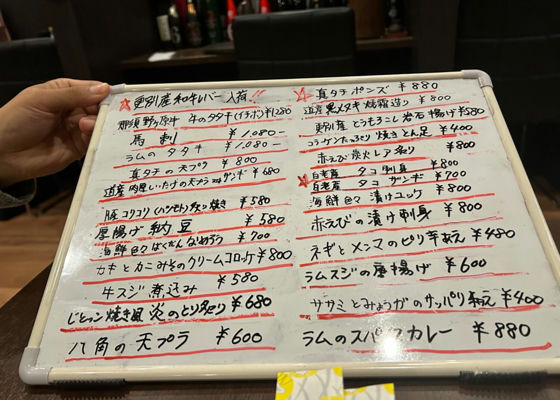 ☆更別産和牛レバー入荷!!
那須野ヶ原牛 牛のタタキ(イチボ) ¥1280
馬刺 ¥1,080-
ラムのタタキ ¥1,080-
真タチの天ぷら ¥800
道産 肉厚しいたけの天プラ ザンギ ¥680
豚コリコリ(ハツモト)炙り焼き ¥580
厚揚げ納豆 ¥580
海鮮色々ばくだんなめろう ¥700
カキとカニみそのクリームコロッケ ¥800
牛スジ煮込み ¥580
じとっこ焼き風 炎のとり炙り ¥680
八角の天プラ ¥600
☆真タチポンズ ¥880
道産黒メヌキ 焼霜造り ¥800
更別産とうもろこし岩石揚げ ¥580
コラーゲンたっぷり焼きとん足 ¥400
赤えび炭火レア炙り ¥800
☆白老産 タコ刺身 ¥800
白老産 タコザンギ ¥700
海鮮色々漬けユッケ ¥800
赤えびの漬け刺身 ¥800
ネギとメンマのピリ辛あえ ¥480
ラムスジの唐揚げ ¥600
ササミとみょうがのサッパリ和え ¥400
ラムのスパイスカレー ¥880